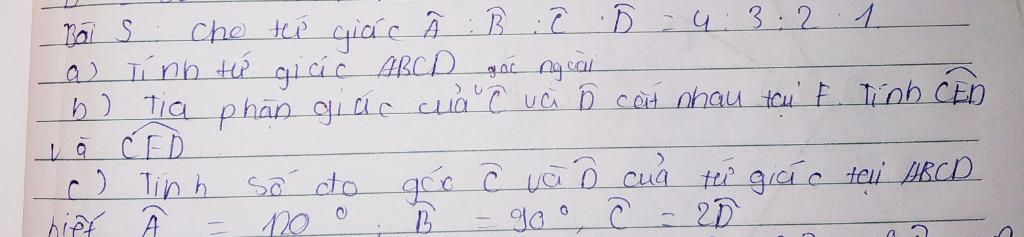 Bài 5: Cho tứ giác Â : B̂ : Ĉ : D̂ = 4 : 3 : 2 : 1
a) Tính tứ giác ABCD góc ngoài
b) Tia phân giác của Ĉ và D̂ cắt nhau tại E. Tính CÊD
và CF̂D
c) Tính số đo góc Ĉ và D̂ của tứ giác tại ABCD
biết Â = 120°; B̂ = 90°, Ĉ = 2D̂